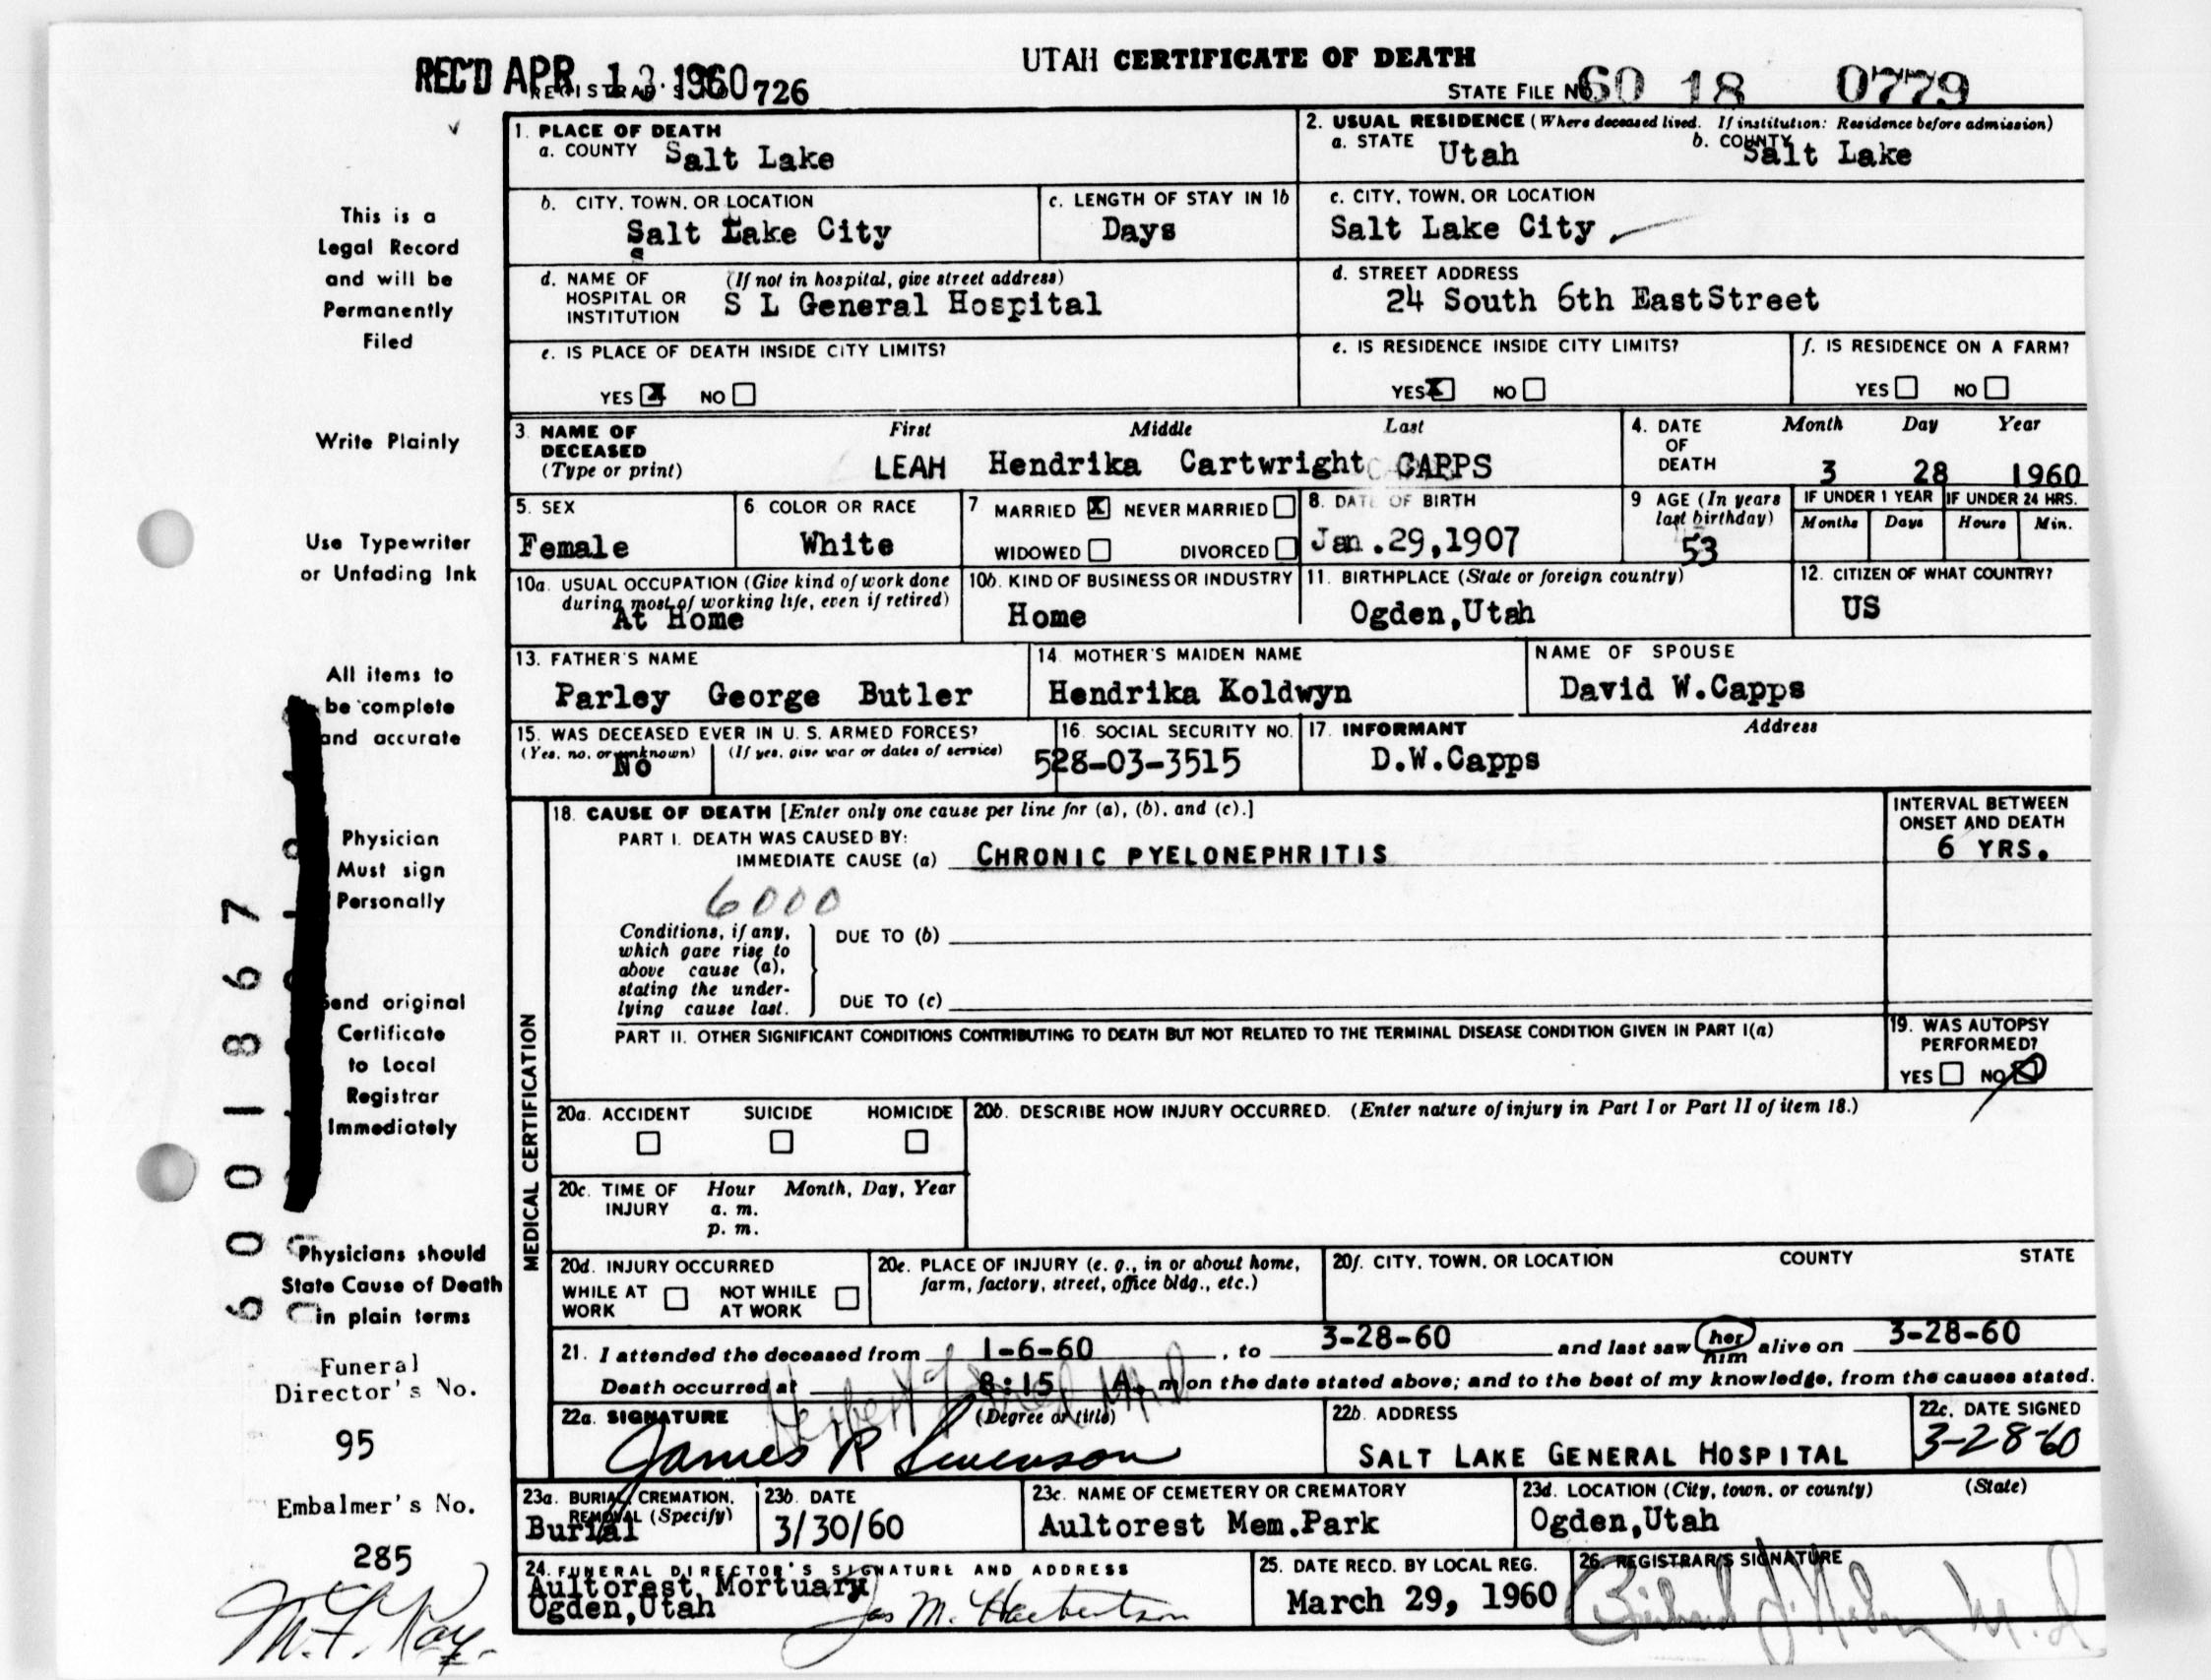 UTAH CERTIFICATE OF DEATH
REC'D APR 13 1960 726
STATE FILE NO. 60 18 0779
1. PLACE OF DEATH
a. COUNTY Salt Lake
2. USUAL RESIDENCE (Where deceased lived. If institution: Residence before admission)
a. STATE Utah b. COUNTY Salt Lake
b. CITY, TOWN, OR LOCATION
Salt Lake City
c. LENGTH OF STAY IN 1b
Days
c. CITY, TOWN, OR LOCATION
Salt Lake City
d. NAME OF HOSPITAL OR INSTITUTION (If not in hospital, give street address)
S L General Hospital
d. STREET ADDRESS
24 South 6th EastStreet
e. IS PLACE OF DEATH INSIDE CITY LIMITS?
YES X NO
e. IS RESIDENCE INSIDE CITY LIMITS?
YES X NO
f. IS RESIDENCE ON A FARM?
YES NO
3. NAME OF DECEASED (Type or print)
First Middle Last
LEAH Hendrika Cartwright CAPPS
4. DATE OF DEATH
Month Day Year
3 28 1960
5. SEX
Female
6. COLOR OR RACE
White
7 MARRIED X NEVER MARRIED
WIDOWED DIVORCED
8. DATE OF BIRTH
Jan.29,1907
9 AGE (In years last birthday)
53
IF UNDER 1 YEAR
Months Days
IF UNDER 24 HRS.
Hours Min.
10a. USUAL OCCUPATION (Give kind of work done during most of working life, even if retired)
At Home
10b. KIND OF BUSINESS OR INDUSTRY
Home
11. BIRTHPLACE (State or foreign country)
Ogden,Utah
12. CITIZEN OF WHAT COUNTRY?
US
13. FATHER'S NAME
Parley George Butler
14. MOTHER'S MAIDEN NAME
Hendrika Koldwyn
NAME OF SPOUSE
David W.Capps
15. WAS DECEASED EVER IN U. S. ARMED FORCES?
(Yes, no, or unknown) (If yes, give war or dates of service)
No
16. SOCIAL SECURITY NO.
528-03-3515
17. INFORMANT Address
D.W.Capps
MEDICAL CERTIFICATION
18. CAUSE OF DEATH [Enter only one cause per line for (a), (b), and (c).]
PART I. DEATH WAS CAUSED BY:
IMMEDIATE CAUSE (a) CHRONIC PYELONEPHRITIS
INTERVAL BETWEEN ONSET AND DEATH
6 YRS.
6000
Conditions, if any, which gave rise to above cause (a), stating the underlying cause last.
DUE TO (b)
DUE TO (c)
PART II. OTHER SIGNIFICANT CONDITIONS CONTRIBUTING TO DEATH BUT NOT RELATED TO THE TERMINAL DISEASE CONDITION GIVEN IN PART I(a)
19. WAS AUTOPSY PERFORMED?
YES NO
20a. ACCIDENT SUICIDE HOMICIDE
20b. DESCRIBE HOW INJURY OCCURRED. (Enter nature of injury in Part I or Part II of item 18.)
20c. TIME OF INJURY Hour Month, Day, Year
a. m.
p. m.
20d. INJURY OCCURRED
WHILE AT WORK NOT WHILE AT WORK
20e. PLACE OF INJURY (e. g., in or about home, farm, factory, street, office bldg., etc.)
20f. CITY, TOWN, OR LOCATION COUNTY STATE
21. I attended the deceased from 1-6-60, to 3-28-60 and last saw her him alive on 3-28-60
Death occurred at 8:15 A. m on the date stated above; and to the best of my knowledge, from the causes stated.
22a. SIGNATURE (Degree or title)
James R Swenson
22b. ADDRESS
SALT LAKE GENERAL HOSPITAL
22c. DATE SIGNED
3-28-60
23a. BURIAL, CREMATION, REMOVAL (Specify)
Burial
23b. DATE
3/30/60
23c. NAME OF CEMETERY OR CREMATORY
Aultorest Mem.Park
23d. LOCATION (City, town, or county) (State)
Ogden,Utah
24. FUNERAL DIRECTOR'S SIGNATURE AND ADDRESS
Aultorest Mortuary
Ogden,Utah
25. DATE RECD. BY LOCAL REG.
March 29, 1960
26. REGISTRAR'S SIGNATURE
This is a
Legal Record
and will be
Permanently
Filed
Write Plainly
Use Typewriter
or Unfading Ink
All items to
be complete
and accurate
Physician
Must sign
Personally
Send original
Certificate
to Local
Registrar
Immediately
Physicians should
State Cause of Death
in plain terms
6001867
Funeral
Director's No.
95
Embalmer's No.
285